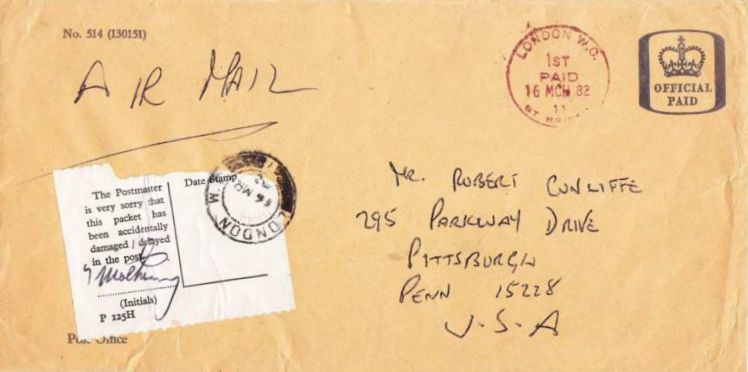 No. 514 (130151)
AIR MAIL
LONDON W.C.
1ST
PAID
16 MCH 82
11
GT. BRITAIN
OFFICIAL
PAID
The Postmaster
is very sorry that
this packet has
been accidentally
damaged / delayed
in the post.
(Initials)
P 125H
Date Stamp
LONDON
16 MR
82
Mr. ROBERT CUNLIFFE
295 PARKWAY DRIVE
PITTSBURGH
PENN 15228
U.S.A
Post Office